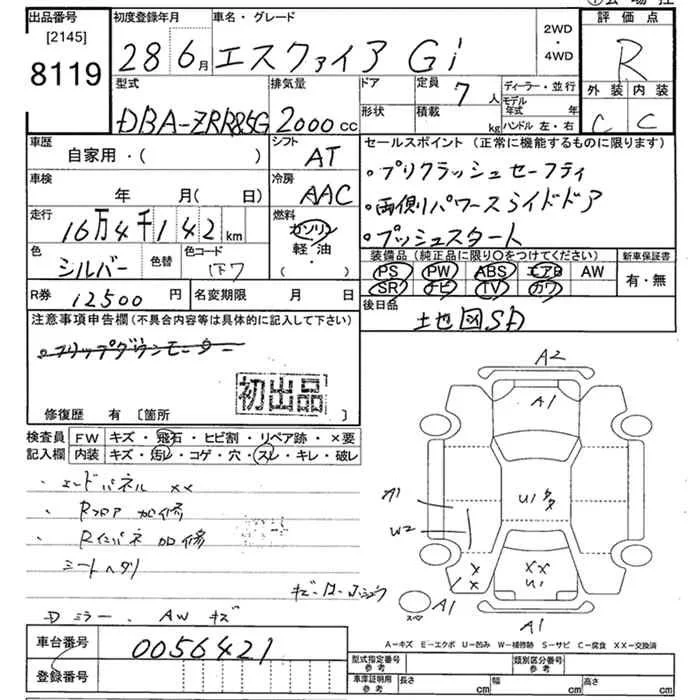 出品番号
[2145]
8119
初度登録年月
28 6月
車名・グレード
エスクァイア Gi
2WD
・
4WD
評価点
R
外装 内装
C C
型式
DBA-ZRR85G
排気量
2000cc
ドア
形状
定員 7人
積載 kg
ディーラー・並行
モデル年式 年
ハンドル 左・右
車歴
自家用・( )
シフト
AT
車検
年 月(日)
冷房
AAC
走行
16万4千142km
燃料
ガソリン
軽・油
( ・ )
色
シルバー
色替
色コード
R券 12500円
名変期限 月 日
セールスポイント(正常に機能するものに限ります)
・プリクラッシュセーフティ
・両側パワースライドドア
・プッシュスタート
装備品(純正品に限り○をつけてください)
新車保証書
PS PW ABS エアB AW
SR ナビ TV カワ
有・無
後日品
地図SD
注意事項申告欄(不具合内容等は具体的に記入して下さい)
・フリップダウンモニター
初出品
修復歴 有 [箇所 ]
検査員記入欄
FW キズ・飛石・ヒビ割・リペア跡・×要
内装 キズ・汚レ・コゲ・穴・スレ・キレ・破レ
・エンドパネル ××
・Rフロア 加修
・Rインパネ 加修
シートヘタリ
Dミラー、AWキズ
A2
A1
A1
W2
U1
××
U1
×
×
A1
A1
A-キズ E-エクボ U-凹み W-補修跡 S-サビ C-腐食 XX-交換済
車台番号
0056421
登録番号
型式指定番号 参考
類別区分番号 参考
車庫証明用 参考
長さ cm
幅 cm
高さ cm